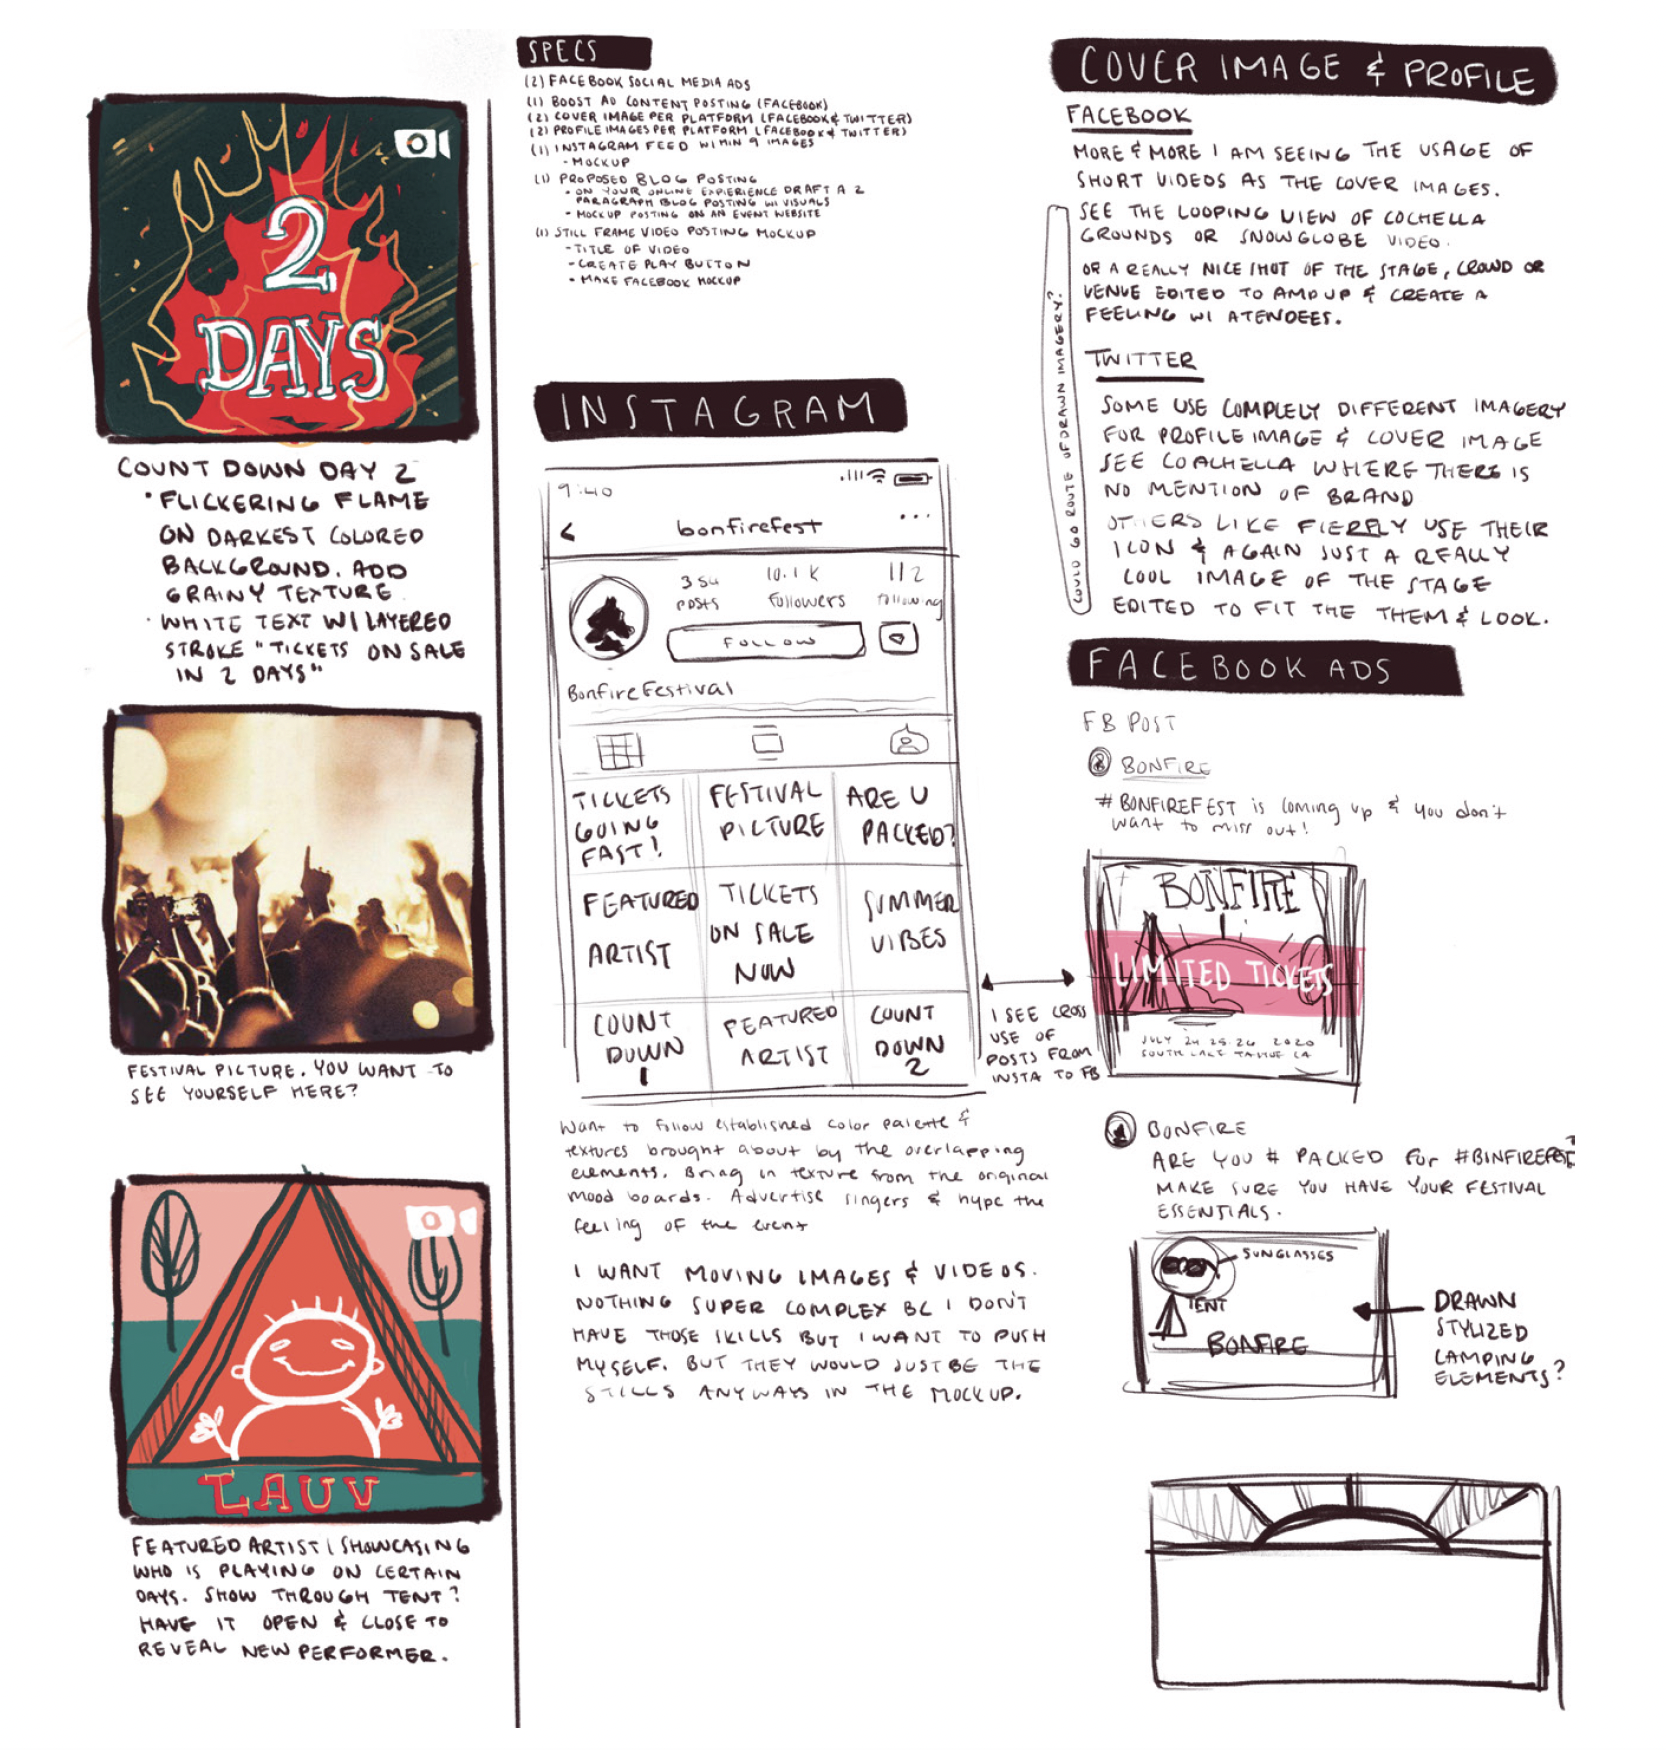 2
DAYS
COUNT DOWN DAY 2
• FLICKERING FLAME
ON DARKEST COLORED
BACKGROUND. ADD
GRAINY TEXTURE
• WHITE TEXT W/ LAYERED
STROKE "TICKETS ON SALE
IN 2 DAYS"
FESTIVAL PICTURE. YOU WANT TO
SEE YOURSELF HERE?
LAUV
FEATURED ARTIST | SHOWCASING
WHO IS PLAYING ON CERTAIN
DAYS. SHOW THROUGH TENT?
HAVE IT OPEN & CLOSE TO
REVEAL NEW PERFORMER.
SPECS
(2) FACEBOOK SOCIAL MEDIA ADS
(1) BOOST AD CONTENT POSTING (FACEBOOK)
(2) COVER IMAGE PER PLATFORM (FACEBOOK & TWITTER)
(2) PROFILE IMAGES PER PLATFORM (FACEBOOK & TWITTER)
(1) INSTAGRAM FEED W/ MIN 9 IMAGES
- MOCKUP
(1) PROPOSED BLOG POSTING
• ON YOUR ONLINE EXPIERIENCE DRAFT A 2
PARAGRAPH BLOG POSTING W/ VISUALS
- MOCKUP POSTING ON AN EVENT WEBSITE
(1) STILL FRAME VIDEO POSTING MOCKUP
- TITLE OF VIDEO
- CREATE PLAY BUTTON
• MAKE FACEBOOK MOCKUP
INSTAGRAM
9:40
< bonfirefest ...
354 10.1K 112
posts followers following
FOLLOW
Bonfire Festival
TICKETS GOING FAST!
FESTIVAL PICTURE
ARE U PACKED?
FEATURED ARTIST
TICKETS ON SALE NOW
SUMMER VIBES
COUNT DOWN 1
FEATURED ARTIST
COUNT DOWN 2
I SEE CROSS
USE OF
POSTS FROM
INSTA TO FB
Want to follow established color palette &
textures brought about by the overlapping
elements. Bring in texture from the original
mood boards. Advertise singers & hype the
feeling of the event
I WANT MOVING IMAGES & VIDEOS.
NOTHING SUPER COMPLEX BC I DON'T
HAVE THOSE SKILLS BUT I WANT TO PUSH
MYSELF. BUT THEY WOULD JUST BE THE
STILLS ANYWAYS IN THE MOCKUP.
COVER IMAGE & PROFILE
FACEBOOK
MORE & MORE I AM SEEING THE USAGE OF
SHORT VIDEOS AS THE COVER IMAGES.
SEE THE LOOPING VIEW OF COCHELLA
GROUNDS OR SNOWGLOBE VIDEO.
OR A REALLY NICE SHOT OF THE STAGE, CROWD OR
VENUE EDITED TO AMP UP & CREATE A
FEELING W/ ATENDEES.
COULD GO ROUTE OF DRAWN IMAGERY?
TWITTER
SOME USE COMPLELY DIFFERENT IMAGERY
FOR PROFILE IMAGE & COVER IMAGE
SEE COALHELLA WHERE THERE IS
NO MENTION OF BRAND
OTHERS LIKE FIERFLY USE THEIR
ICON & AGAIN JUST A REALLY
COOL IMAGE OF THE STAGE
EDITED TO FIT THE THEM & LOOK.
FACEBOOK ADS
FB POST
BONFIRE
#BONFIREFEST is coming up & you don't
want to miss out!
BONFIRE
LIMITED TICKETS
JULY 24 25-26 2020
SOUTH LAKE TAHOE CA
BONFIRE
ARE YOU # PACKED for #BINFIREFEST
MAKE SURE YOU HAVE YOUR FESTIVAL
ESSENTIALS.
SUNGLASSES
TENT
BONFIRE
DRAWN
STYLIZED
CAMPING
ELEMENTS?